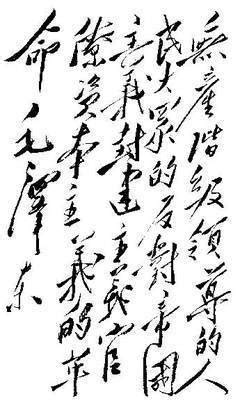 無產階級領導的人
民大眾的反對帝國
主義封建主義官
僚資本主義的革
命 毛澤东